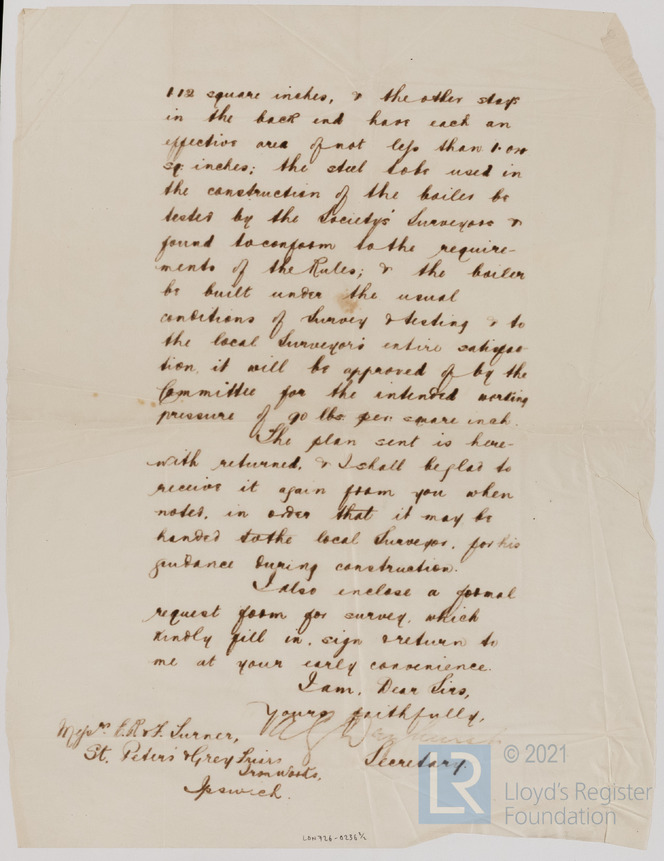 1.12 square inches, & the other stays
in the back end have each an
effective area of not less than 1.
sq. inches; the steel to be used in
the construction of the boiler be
tested by the Society's Surveyors &
found to conform to the require-
ments of the Rules; & the boiler
be built under the usual
conditions of Survey & testing & to
the local Surveyor's entire satisfac-
tion, it will be approved of by the
Committee for the intended working
pressure of 90 lbs. per square inch.
The plan sent is here-
with returned, & I shall be glad to
receive it again from you when
noted, in order that it may be
handed to the local Surveyor, for his
guidance during construction.
I also inclose a formal
request form for survey, which
kindly fill in, sign & return to
me at your early convenience.
I am, Dear Sirs,
Yours faithfully,
Secretary.
Messrs. E.R. & F. Turner,
St. Peter's & Grey Friars
Iron Works,
Ipswich.
LR
© 2021
Lloyd's Register
Foundation
LON726-0236 1/2